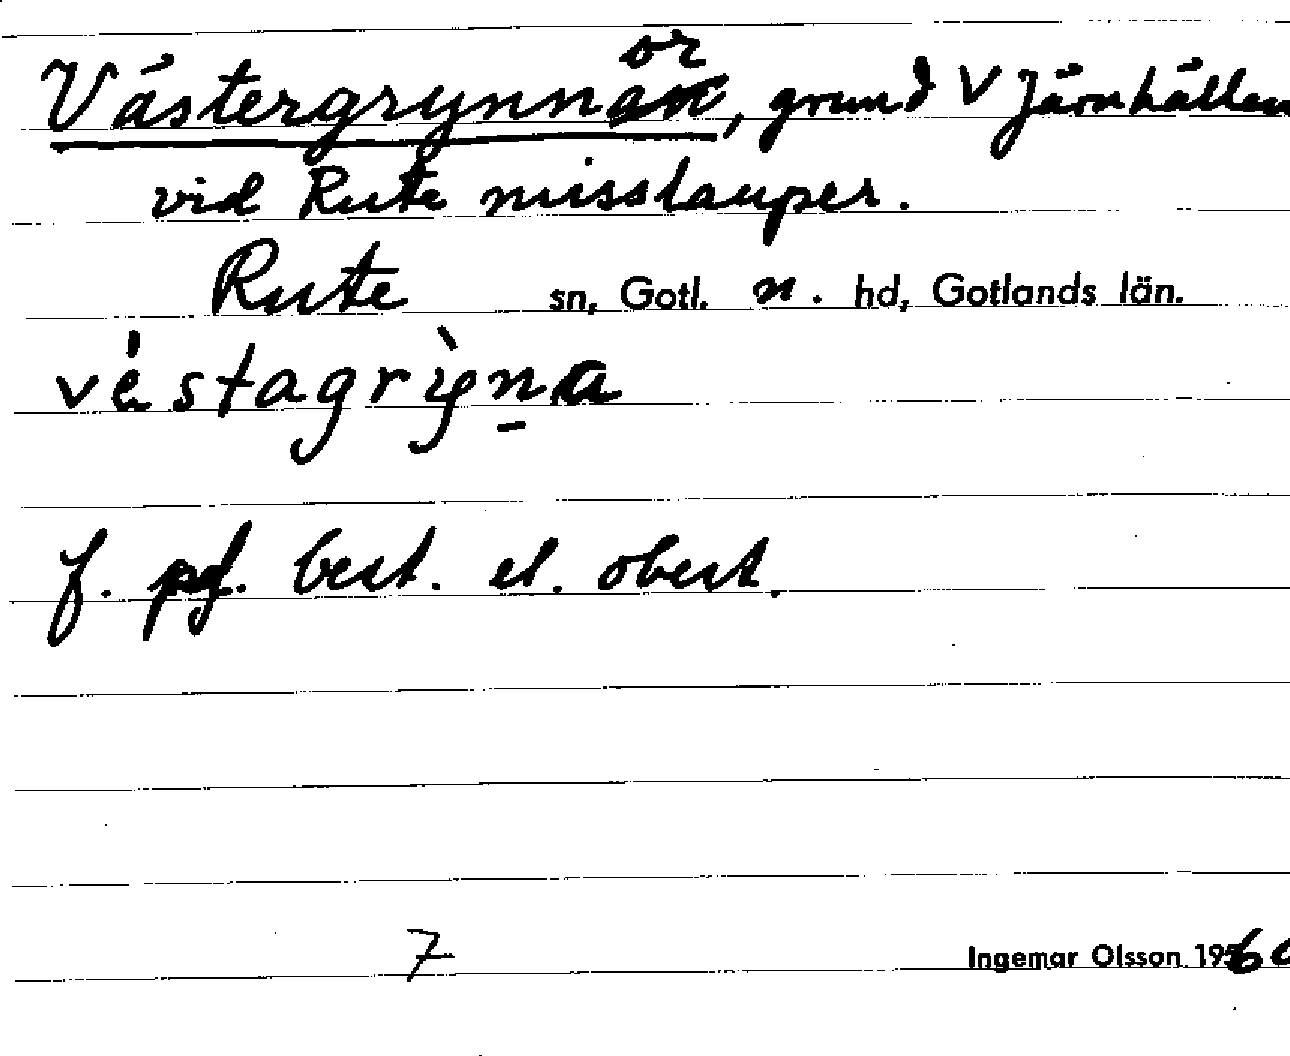 Västergrynnor, grund V Järnhällan
vid Rute misslauper.
Rute sn, Gotl. n. hd, Gotlands län.
vèstagrỳna
f. pl. best. el. obest.
7
Ingemar Olsson 1960